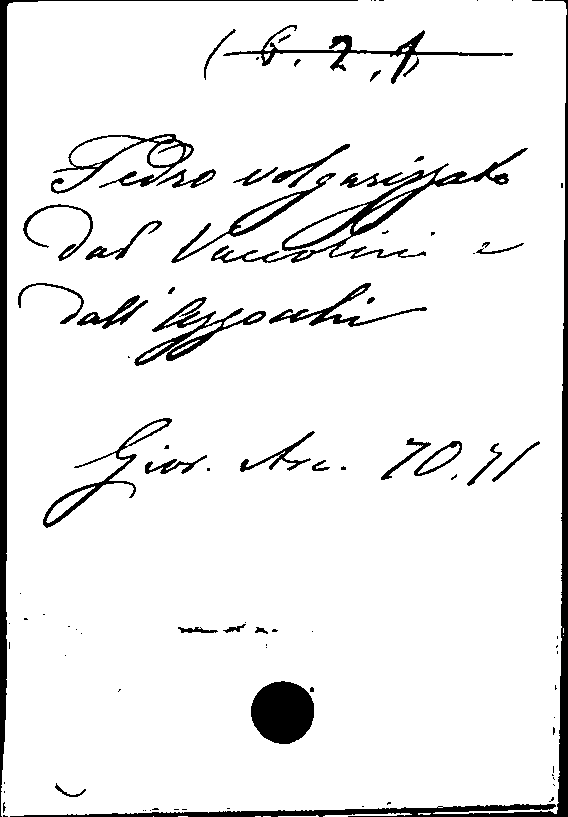 (6. 2. 1)
Fedro volgarizzato
dal Vaccolini e
dall'Azzocchi
Gior. Arc. 70.71